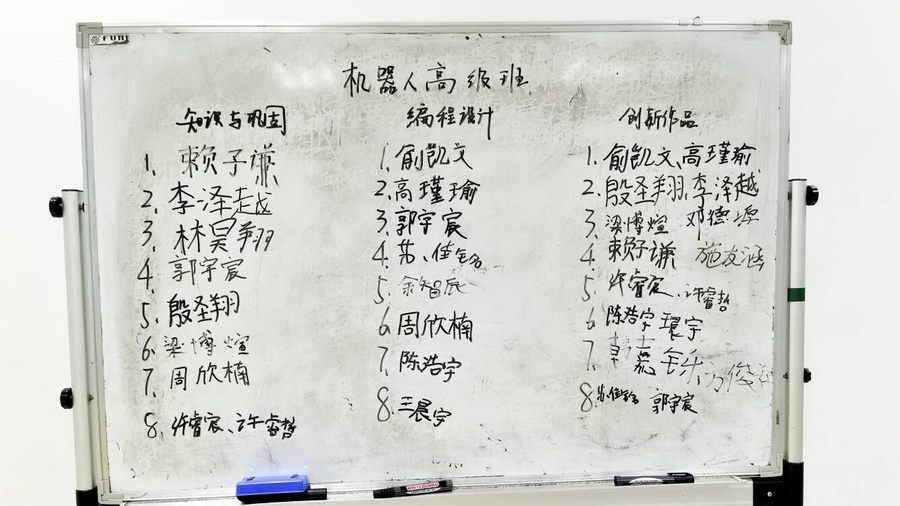 机器人高级班
知识与巩固
1. 赖子谦
2. 李泽越
3. 林昊翔
4. 郭宇宸
5. 殷圣翔
6. 梁博煊
7. 周欣楠
8. 许睿宸、许睿哲
编程设计
1. 俞凯文
2. 高瑾瑜
3. 郭宇宸
4. 苏佳铭
5. 余智辰
6. 周欣楠
7. 陈浩宇
8. 王晨宇
创新作品
1. 俞凯文、高瑾瑜
2. 殷圣翔、李泽越
3. 梁博煊 邓德源
4. 赖子谦 施友涵
5. 许睿宸、许睿哲
6. 陈浩宇 環宇
7.
8. 苏佳铭 郭宇宸